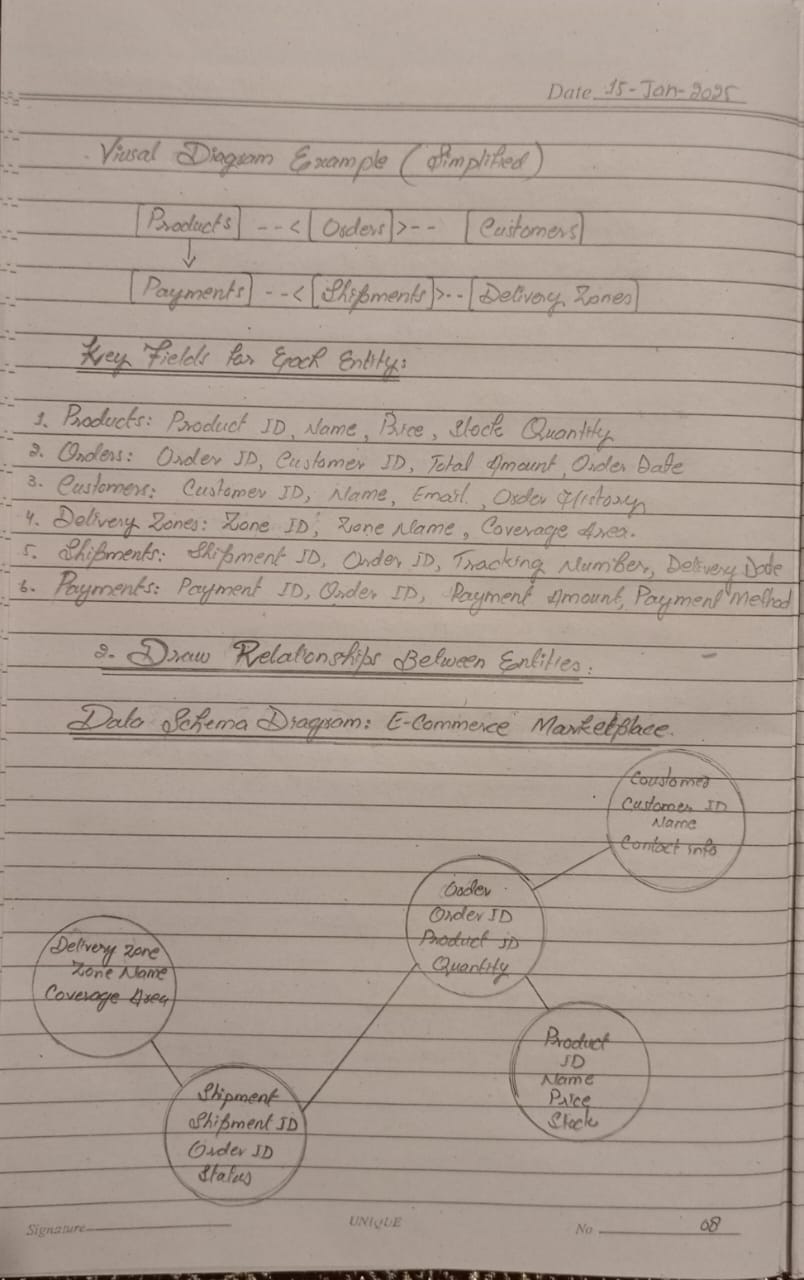 Date 15-Jan-2025
Viusal Diagram Example (Simplified)
[Products] --< [Orders] >-- [Customers]
[Payments] --< [Shipments] >-- [Delivery Zones]
Key Fields for Each Entity:
1. Products: Product ID, Name, Price, Stock Quantity
2. Orders: Order ID, Customer ID, Total Amount, Order Date
3. Customers: Customer ID, Name, Email, Order History
4. Delivery Zones: Zone ID, Zone Name, Coverage Area.
5. Shipments: Shipment ID, Order ID, Tracking Number, Delivery Date
6. Payments: Payment ID, Order ID, Payment Amount, Payment Method
2. Draw Relationships Between Entities:
Data Schema Diagram: E-Commerce Marketplace.
Coustomer
Customer ID
Name
Contact info
Order
Order ID
Product ID
Quantity
Delivery Zone
Zone Name
Coverage Area
Product
ID
Name
Price
Stock
Shipment
Shipment ID
Order ID
Status
Signature
UNIQUE
No 08